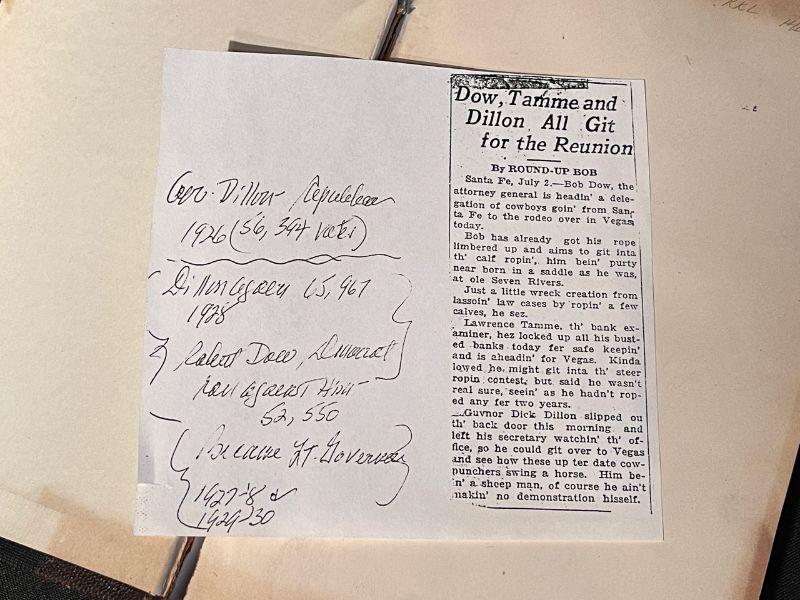 Gov. Dillon Republican
1926 (56,394 votes)
Dillon again 65,967
1928
Robert Dow, Democrat
ran against Him
52,550
Became Lt. Governor
1927-8 &
1929-30
Dow, Tamme and
Dillon All Git
for the Reunion
By ROUND-UP BOB
Santa Fe, July 2.—Bob Dow, the
attorney general is headin' a dele-
gation of cowboys goin' from San-
ta Fe to the rodeo over in Vegas
today.
Bob has already got his rope
limbered up and aims to git inta
th' calf ropin', him bein' purty
near born in a saddle as he was,
at ole Seven Rivers.
Just a little wreck creation from
lassoin' law cases by ropin' a few
calves, he sez.
Lawrence Tamme, th' bank ex-
aminer, hez locked up all his bust-
ed banks today fer safe keepin'
and is aheadin' for Vegas. Kinda
lowed he might git inta th' steer
ropin contest, but said he wasn't
real sure, seein' as he hadn't rop-
ed any fer two years.
Guvnor Dick Dillon slipped ou
th' back door this morning and
left his secretary watchin' th' of-
fice, so he could git over to Vegas
and see how these up ter date cow-
punchers swing a horse. Him be-
n' a sheep man, of course he ain't
makin' no demonstration hisself.